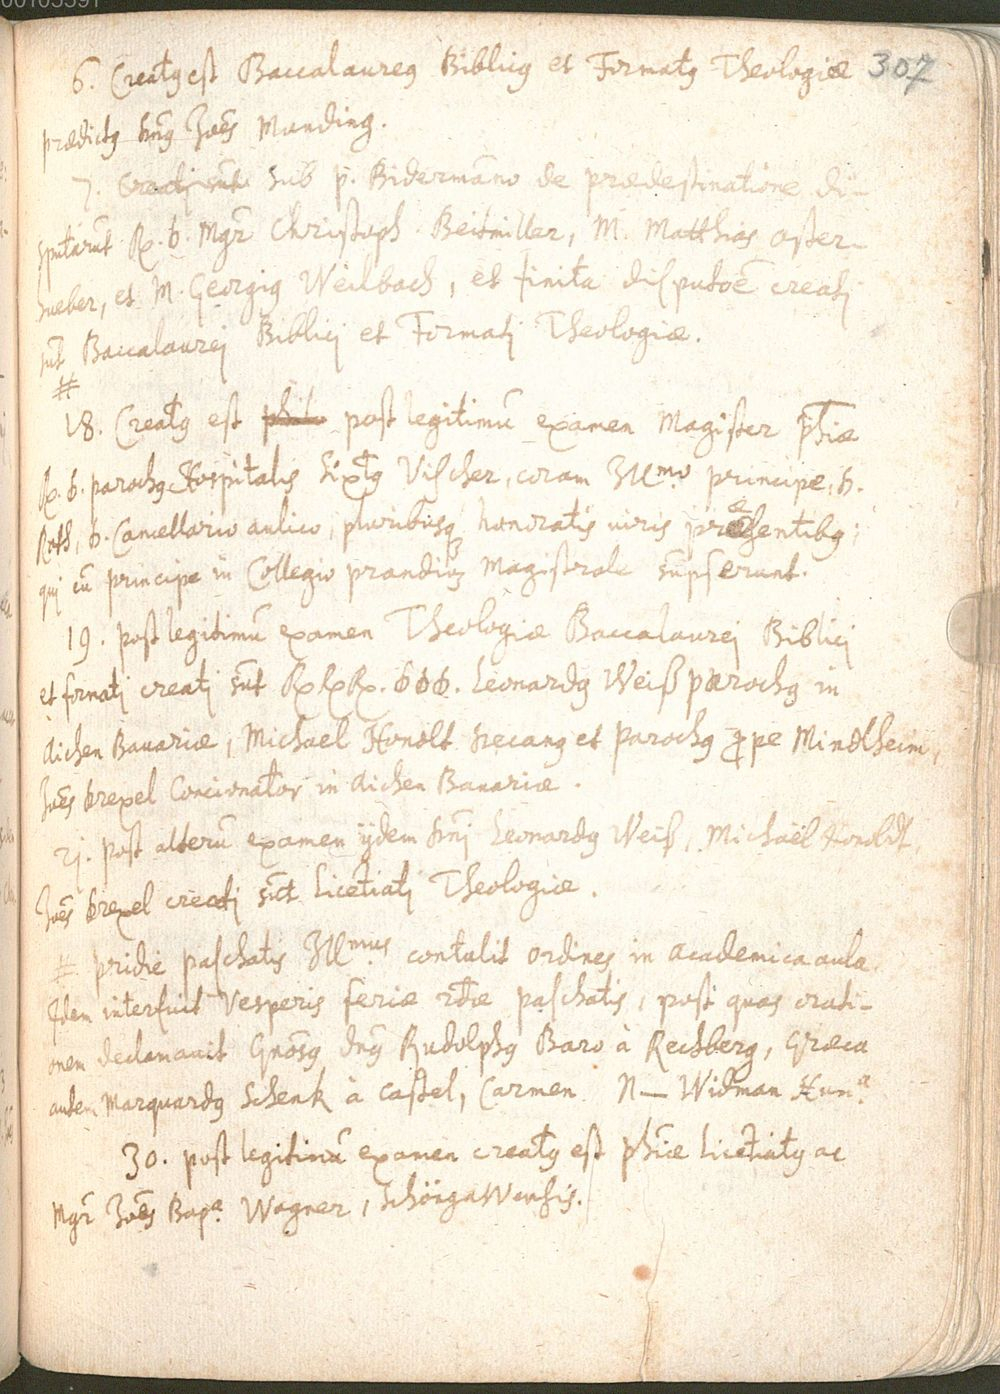 00105591
307
6. Creatꝰ est Baccalaureꝰ Biblicꝰ et Formatꝰ Theologiæ
prædictꝰ Dn̄ꝰ Joēs Manding.
7. Creati sunt sub p. Bidermāno de prædestinatione di-
sputarūt R. D. Mgr̄ Christoph. Beitmiller, M. Matthias Oster-
hueber, et M. Georgiꝰ Weilbach, et finita disputōe creatj
sūt Baccalaurej Biblicj et Formatj Theologiæ.
#
18. Creatꝰ est philo post legitimū examen Magister ph̄iæ
R. D. parochꝰ Hospitalis Sixtꝰ Vischer, coram Illmo principe, D.
Roth, D. Cancellario aulico, pluribusqꝫ honoratis uiris præsentibꝰ;
quj cū principe in Collegio prandiuꝫ Magistrale sumpserunt.
19. post legitimū examen Theologiæ Baccalaurej Biblicj
et formatj creatj sūt RRR. DDD. Leonardꝰ Weiß parochꝰ in
Aichen Bauariæ, Michael Honolt Decanꝰ et parochꝰ ꝓpe Mindlheim,
Joēs Drexel Concionator in Aichen Bauariæ.
21. post alterū examen ijdem Dn̄j Leonardꝰ Weiß, Michaël Honoldt,
Joēs Drexel creatj sūt Licētiatj Theologiæ.
# pridie paschatis Illmus contulit ordines in academica aula
Idem interfuit Vesperis feriæ 2dæ paschatis, post quas orati-
onem declamauit Gnōsꝰ dn̄ꝰ Rudolphꝰ Baro à Rechberg, Græca
autem Marquardꝰ Schenk à Castel, Carmen N— Widman Hum.a
30. post legitimū examen creatꝰ est ph̄iæ Licētiatꝰ ac
Mgr̄ Joēs Bapa Wagner, Schöngawensis.